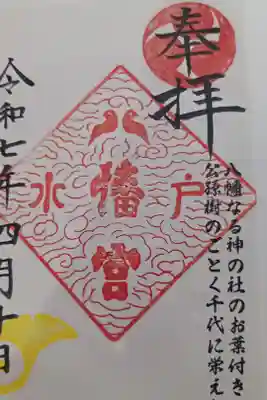 奉拝
八幡なる神の社のお葉付き
公孫樹のごとく千代に栄え
八幡宮
水戸
令和七年四月十日